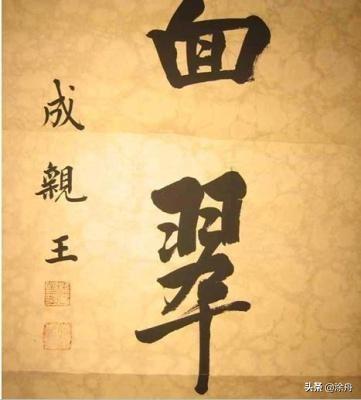 面翠
成親王
头条 @涂舟